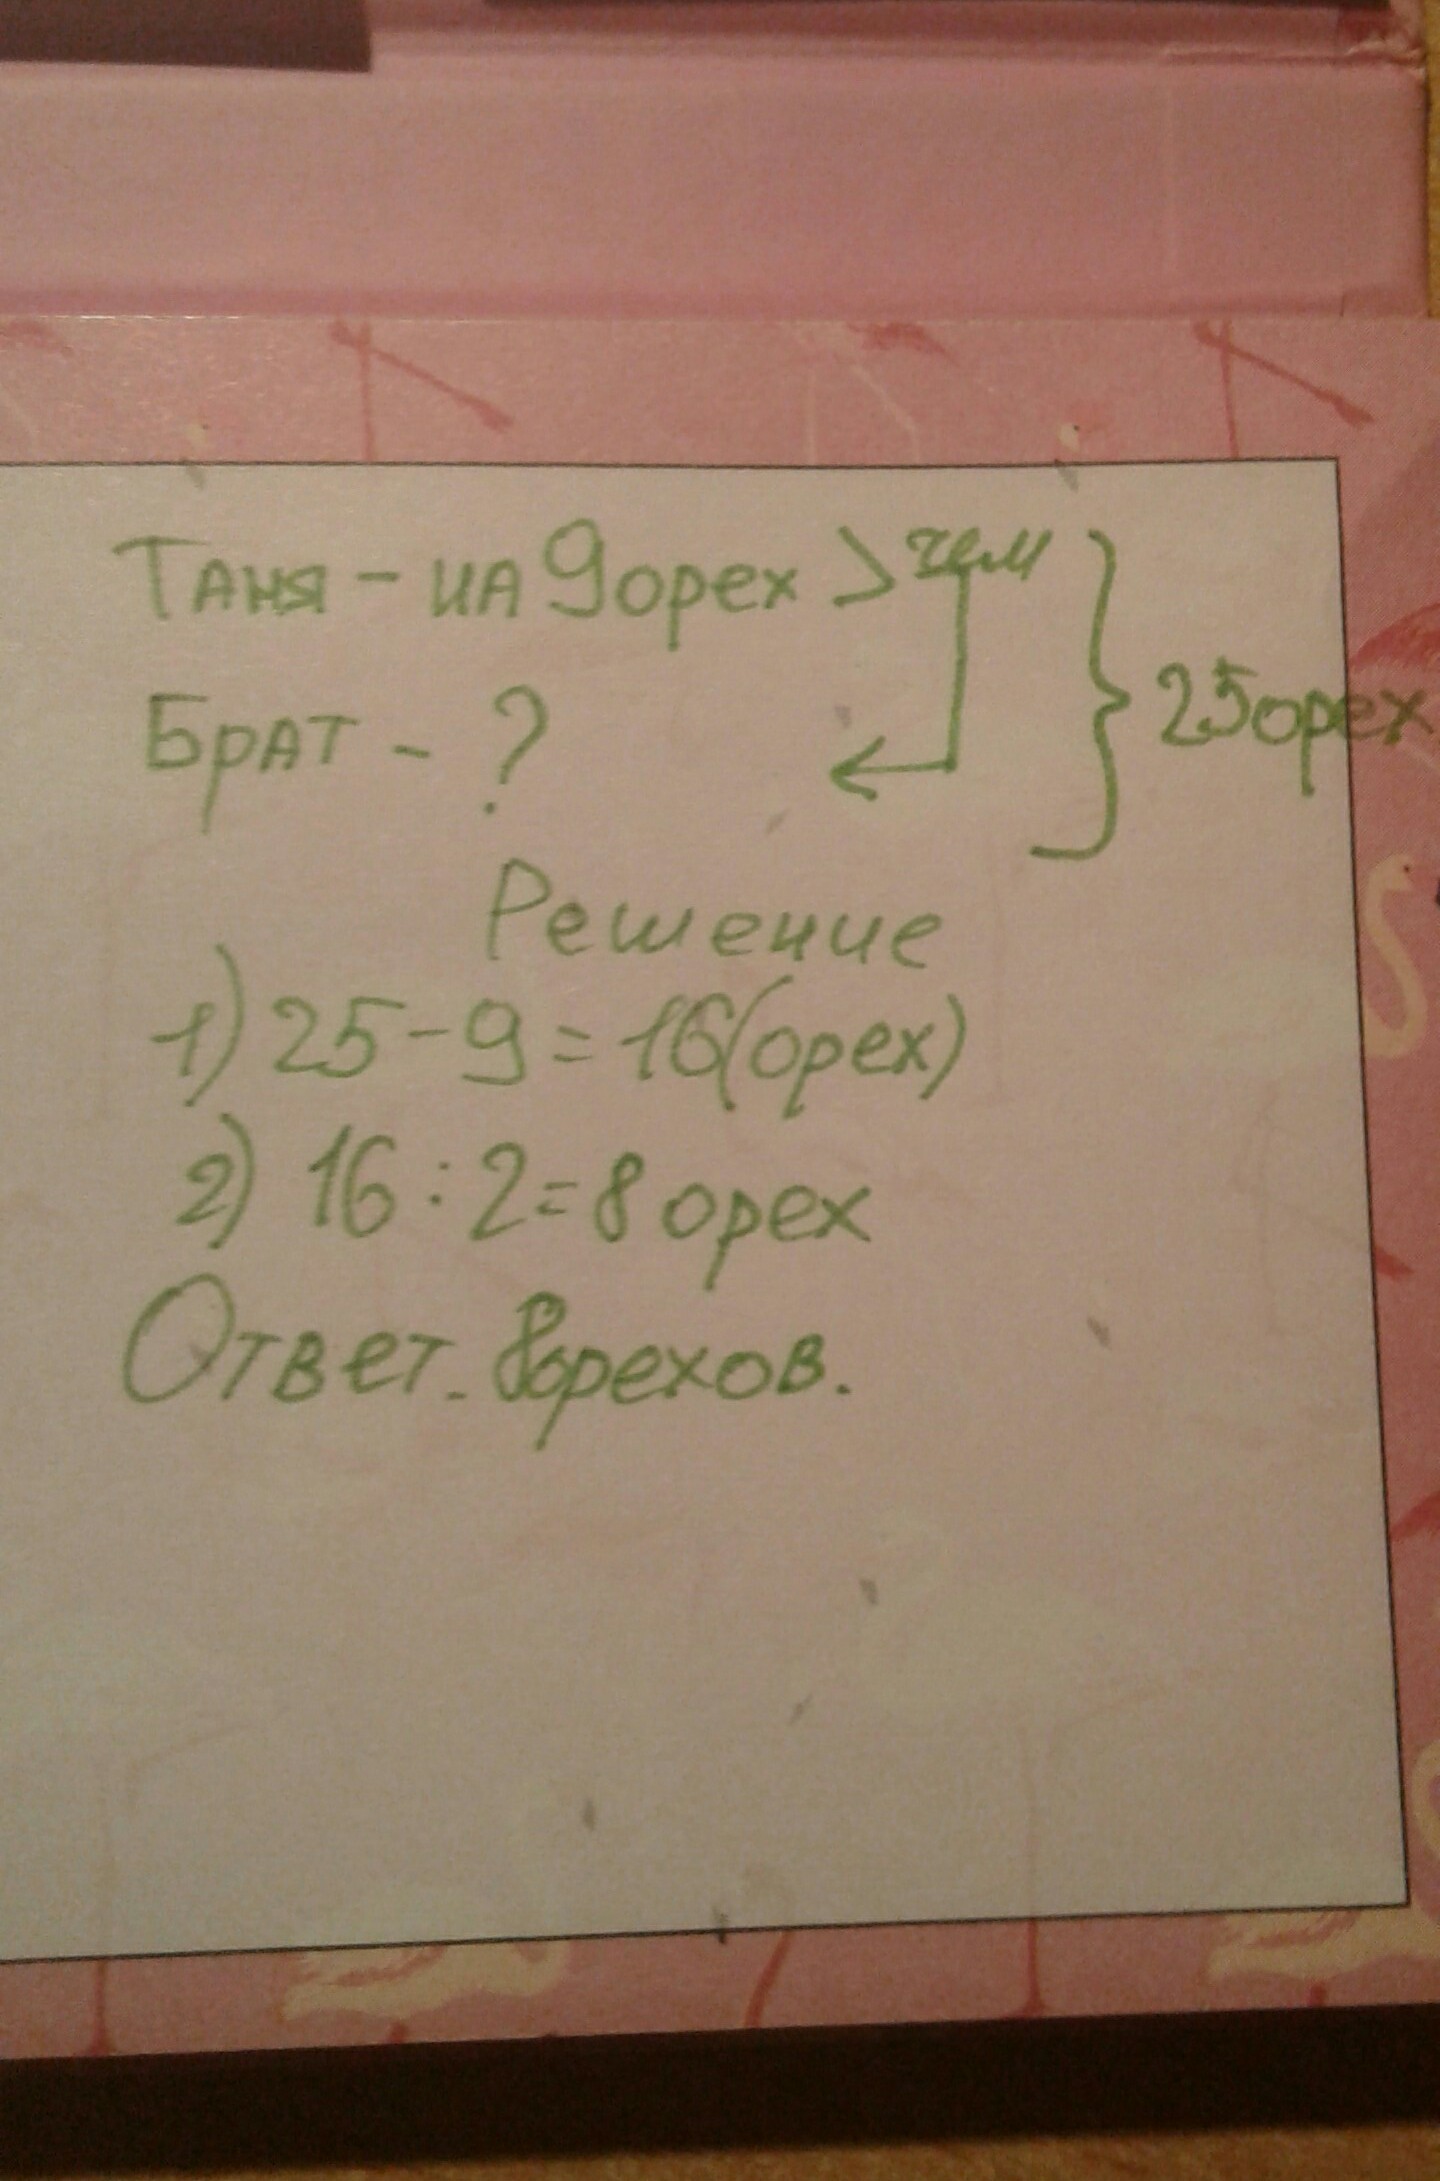 Таня - на 9 орех > чем
Брат - ?
25 орех
Решение
1) 25 - 9 = 16 (орех)
2) 16 : 2 = 8 орех
Ответ. 8 орехов.